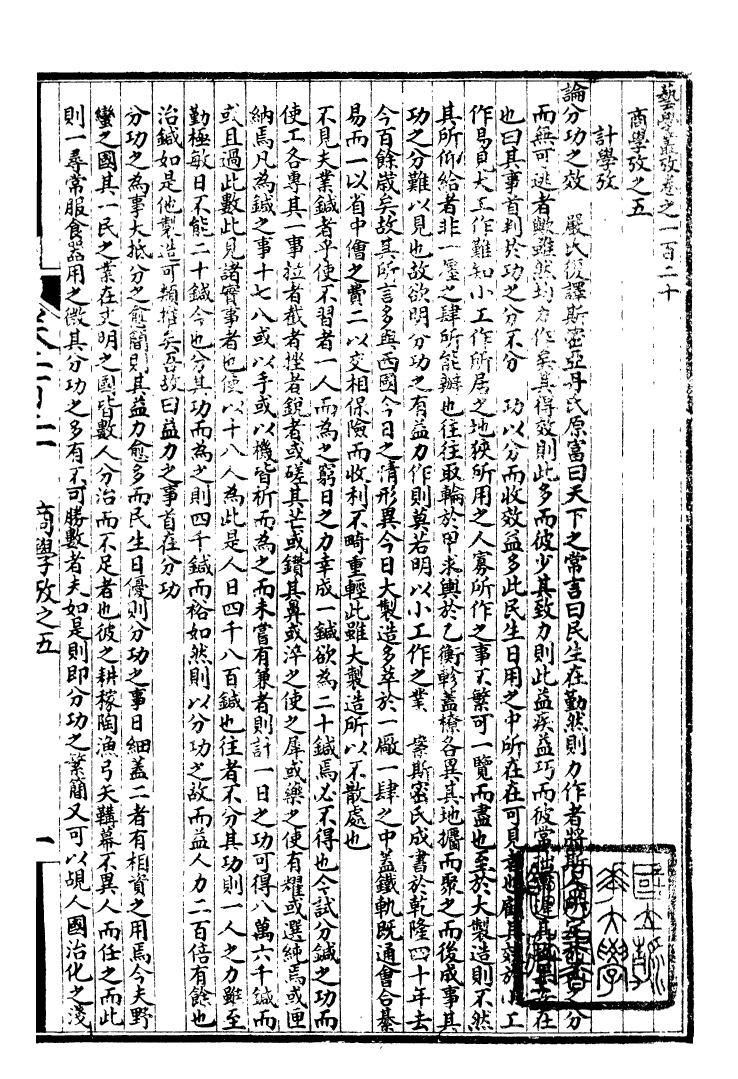 藝學叢攷卷之一百二十
商學攷之五
計學攷
論分功之效　嚴氏復譯斯密亞丹氏原富曰天下之常言曰民生在勤然則力作者將斯人所之分
而無可逃者歟雖然均力作矣其得效則此多而彼少其致力則此益疾益巧而彼常拙遲其在
也曰其事首判於功之分不分　功以分而收效益多此民生日用之中所在在可見者也顧其效於小工
作易見大工作難知小工作所居之地狹所用之人寡所作之事不繁可一覽而盡也至於大製造則不然
其所仰給者非一廛之肆所能辦也往往取輪於甲求輿於乙衡軫蓋橑各異其地攟而聚之而後成事其
功之分難以見也故欲明分功之有益力作則莫若明以小工作之業　案斯密氏成書於乾隆四十年去
今百餘歲矣故其所言多與西國今日之情形異今日大製造多萃於一厰一肆之中蓋鐵軌既通會合綦
易而一以省中儈之費二以交相保險而收利不畸重輕此雖大製造所以不散處也
不見夫業鍼者乎使不習者一人而為之窮日之力幸成一鍼欲為二十鍼焉必不得也今試分鍼之功而
使工各專其一事拉者截者挫者銳者或磋其芒或鑽其鼻或淬之使之犀或藥之使有耀或選純焉或匣
納焉凡為鍼之事十七八或以手或以機皆析而為之而未嘗有兼者則計一日之功可得八萬六千鍼而
或且過此數此見諸實事者也使以十八人為此是人日四千八百鍼也往者不分其功則一人之力雖至
勤極敏日不能二十鍼今也分其功而為之則四千鍼而裕如然則以分功之故而益人力二百倍有餘也
治鍼如是他製造可類推矣吾故曰益力之事首在分功
分功之為事大抵分之愈簡則其益力愈多而民生日優則分功之事日細蓋二者有相資之用焉今夫野
蠻之國其一民之業在文明之國皆數人分治而不足者也彼之耕稼陶漁弓矢鞲幕不異人而任之而此
則一尋常服食器用之微其分功之多有不可勝數者夫如是則即分功之繁簡又可以覘人國治化之淺
卷一百二　商學攷之五　一
國立清
華大學